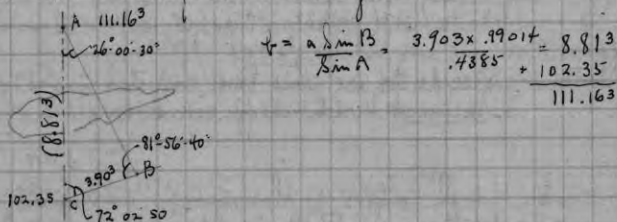 A 111.16³
26°-00'-30"
(8.813)
81°-56'-40"
B
3.90³
102.35
C
72° 02' 50
b = a Sin B / Sin A = 3.903 x .99014 / .4385 = 8.813
+ 102.35
111.163